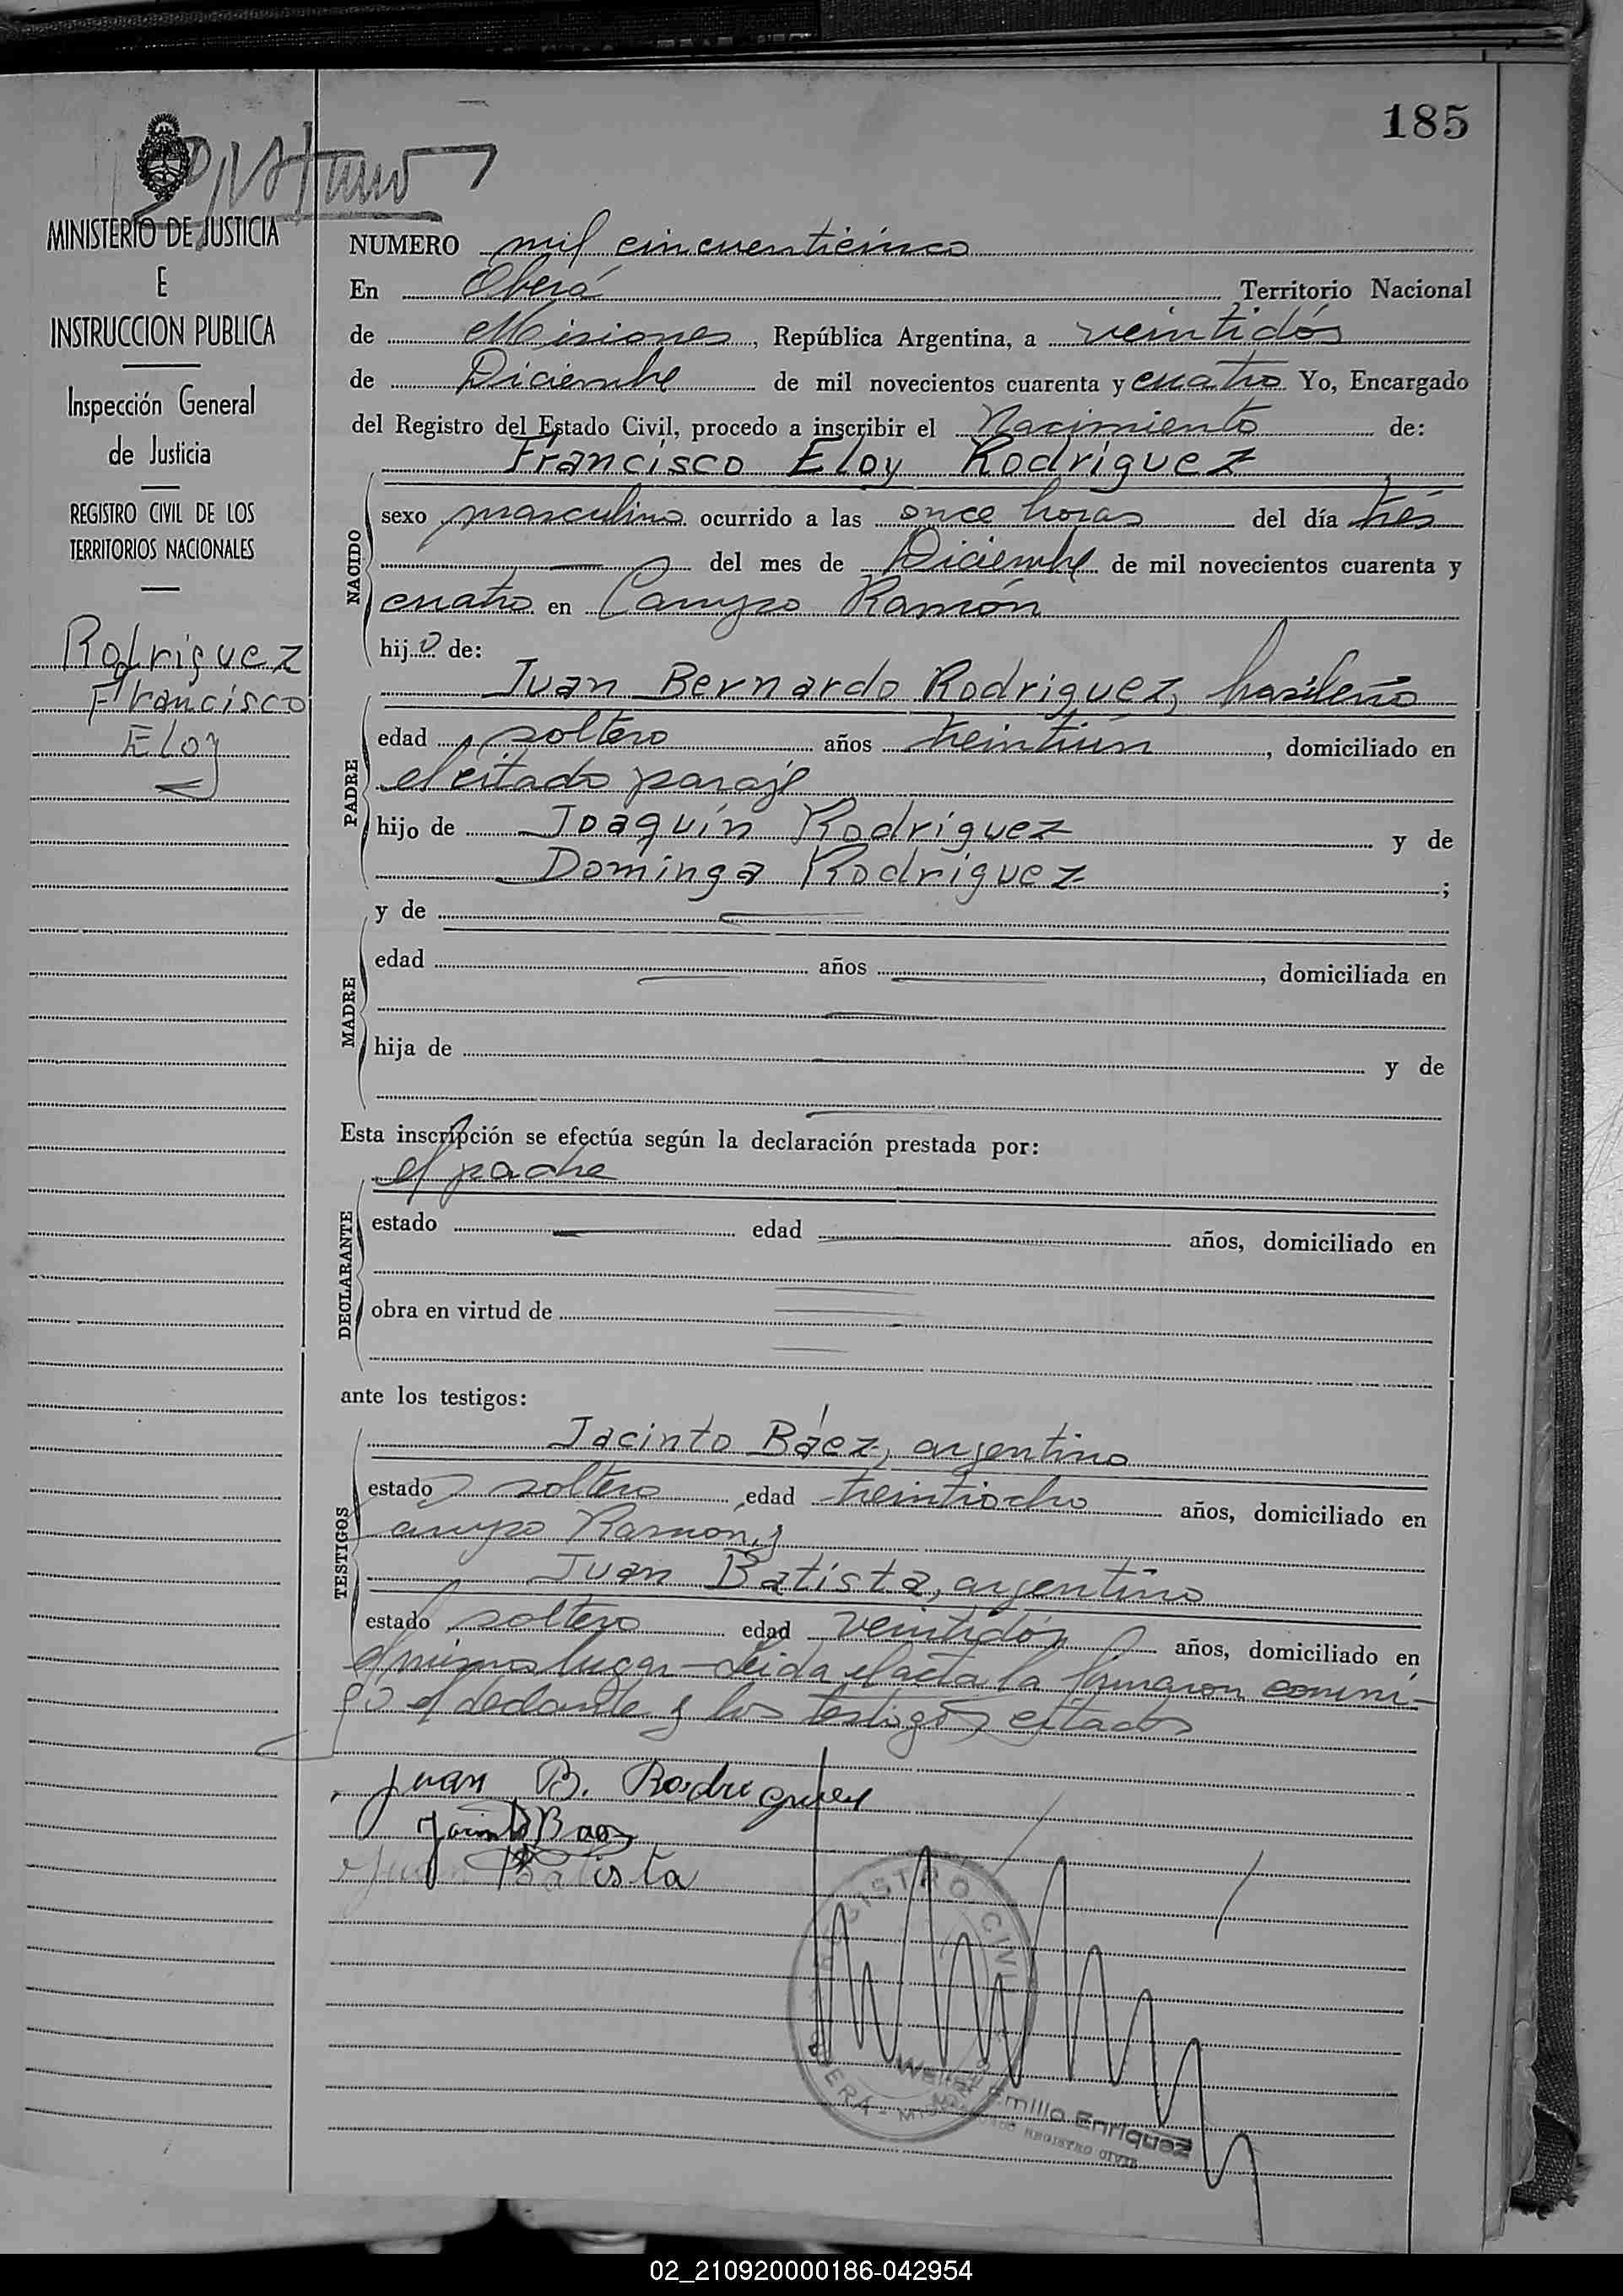 185
MINISTERIO DE JUSTICIA
E
INSTRUCCION PUBLICA
Inspección General
de Justicia
REGISTRO CIVIL DE LOS
TERRITORIOS NACIONALES
Rodriguez
Francisco
Eloy
NUMERO mil cincuenticinco
En Oberá Territorio Nacional
de Misiones, República Argentina, a veintidós
de Diciembre de mil novecientos cuarenta y cuatro Yo, Encargado
del Registro del Estado Civil, procedo a inscribir el Nacimiento de:
Francisco Eloy Rodriguez
NACIDO
sexo masculino ocurrido a las once horas del día trés
del mes de Diciembre de mil novecientos cuarenta y
cuatro en Campo Ramón
hijo de:
Juan Bernardo Rodriguez, brasileño
PADRE
edad soltero años treintiún, domiciliado en
el citado paraje
hijo de Joaquín Rodriguez y de
Dominga Rodriguez;
y de
MADRE
edad años, domiciliada en
hija de y de
Esta inscripción se efectúa según la declaración prestada por:
el padre
DECLARANTE
estado edad años, domiciliado en
obra en virtud de
ante los testigos:
Jacinto Báez, argentino
TESTIGOS
estado soltero edad treintiocho años, domiciliado en
Campo Ramón, y
Juan Batista, argentino
estado soltero edad veintidós años, domiciliado en
el mismo lugar - Leida el acta la firmaron conmi-
go el declante y los testigos citados
Juan B. Rodriguez
Jacinto Baez
Juan Batista
REGISTRO CIVIL
OBERA - MISIONES
Emilio Enriquez
REGISTRO CIVIL
02_210920000186-042954